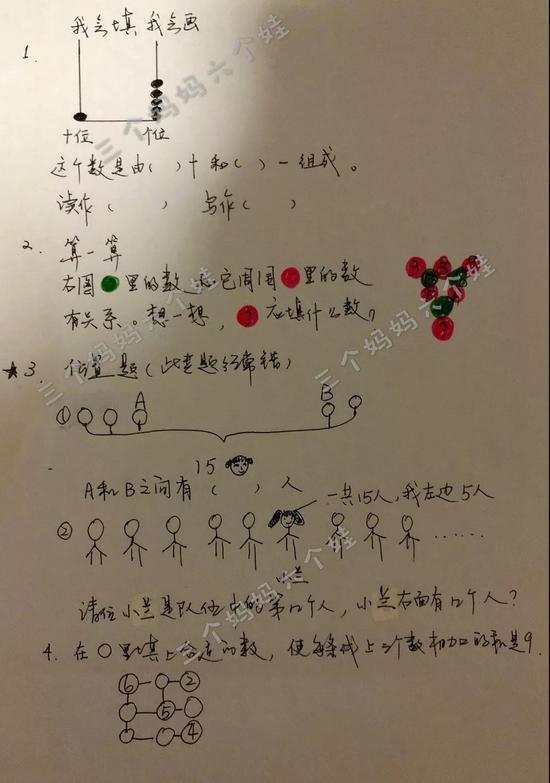 我会填 我会画
1.
十位 个位
这个数是由( )十和( )一组成。
读作( ) 写作( )
2. 算一算
右图 里的数 它周围 里的数
有关系。想一想, ? 应填什么数?
★3. 位置题(此类题经常错)
A B
①
15
A和B之间有( )人
一共15人,我左边5人
②
小兰
请问小兰是队伍中的第几个人,小兰右面有几个人?
4. 在○里填上合适的数,使每条线上三个数相加的和是9.
6 2
5
4
三个妈妈六个娃
三个妈妈六个娃
三个妈妈六个娃
三个妈妈六个娃